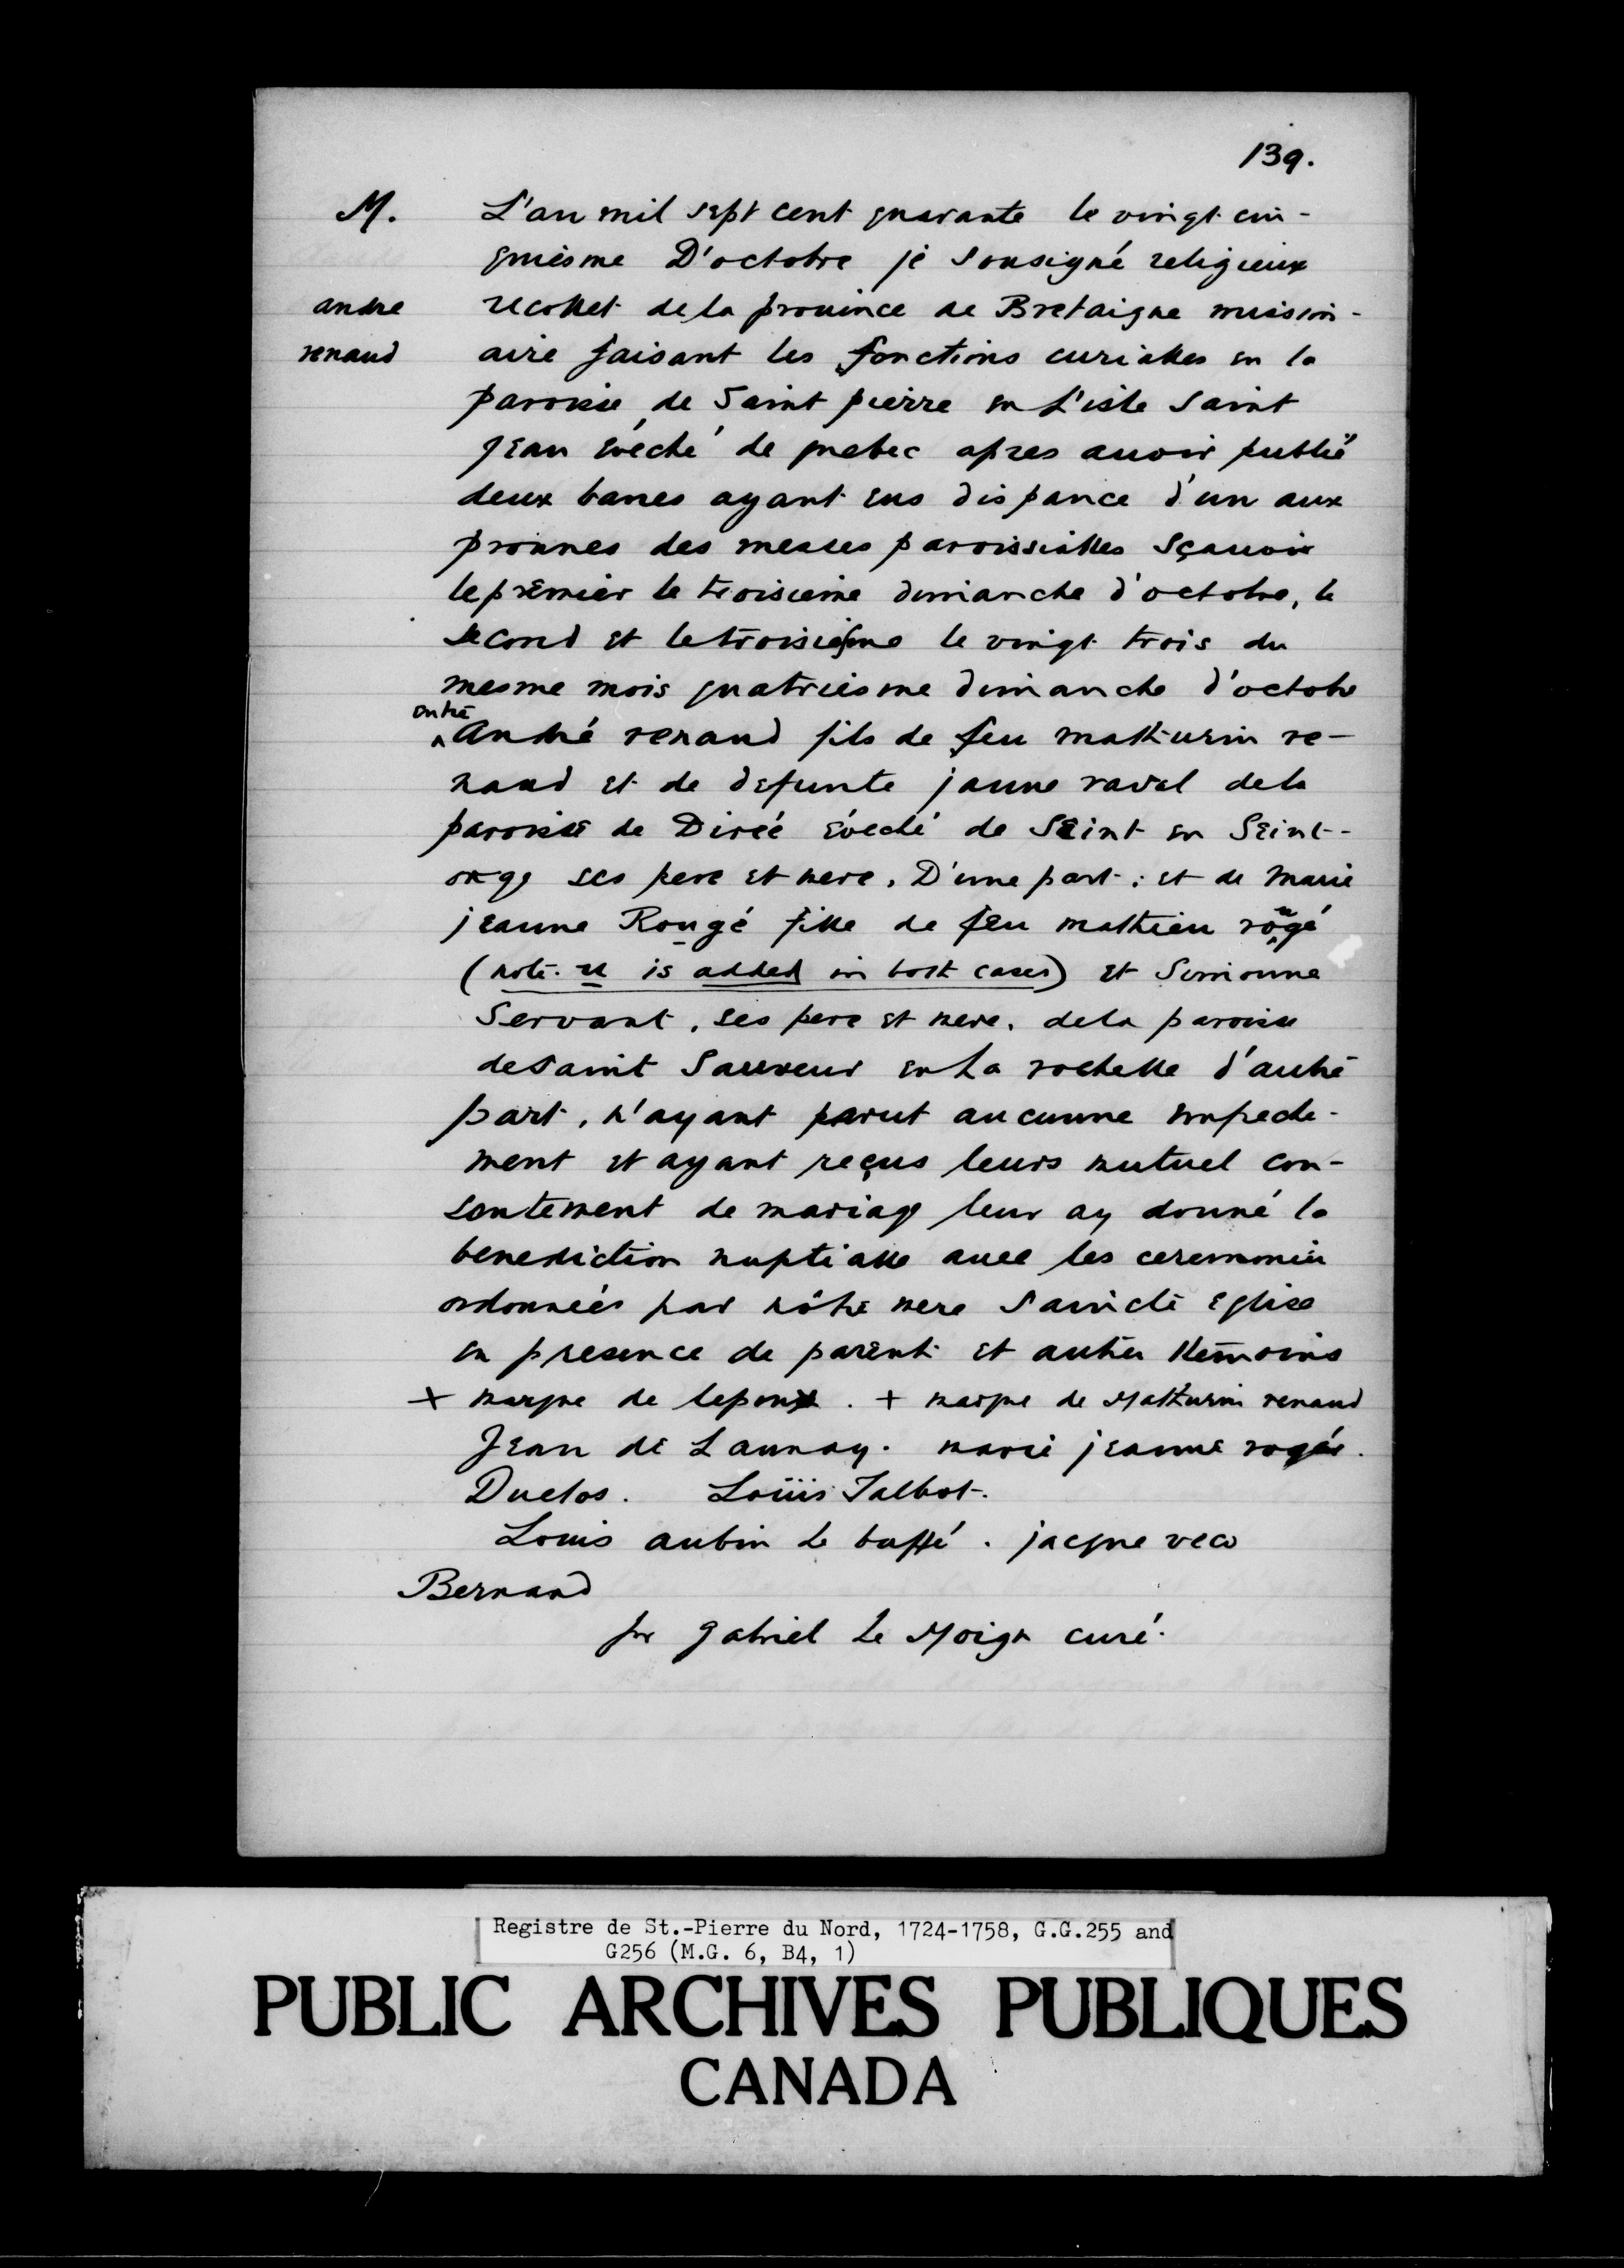 139.
M. L'an mil sept cent quarante le vingt cin-
quiesme D'octobre je sousigné religieux
andre recollet de la prouince de Bretaigne mission-
renaud aire faisant les fonctions curialles en la
paroisse de Saint pierre en L'isle Saint
Jean évéché de quebec apres auoir publié
deux banes ayant eus dispance d'un aux
pronnes des messes paroissialles sçauoir
le prêmier le troisieme dimanche d'octobre, le
second et le troisiesme le vingt trois du
mesme mois quatriesme dimanche d'octobre
entre
^ André renaud fils de feu mathurin re-
naud et de defunte jaune raval de la
paroisse de Direé évéché de Seint en Seint-
onge ses pere et mere, D'une part; et de Marie
jeanne Rougé fille de feu mathieu rougé
(note. u is added in both cases) et Simonne
Servant, ses pere et mere, de la paroisse
de saint Sauveur en La rochelle d'autre
part, n'ayant parut aucunne empede-
ment et ayant reçus leurs mutuel con-
sentement de mariage leur ay donné la
benediction nuptialle auec les ceremonies
ordonneés par nôtre mere Saincte Eglise
en presence de parent et autres temoins
+ marque de lepoux. + marque de Mathurin renaud
Jean de Launay. marie jeanne rogée.
Duclos. Loüis Talbot.
Louis aubin le buffé. jacque veco
Bernard
fr gabriel Le Moign curé.
Registre de St.-Pierre du Nord, 1724-1758, G.G.255 and
G256 (M.G. 6, B4, 1)
PUBLIC ARCHIVES PUBLIQUES
CANADA